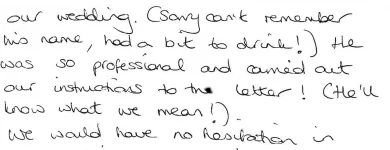 our wedding. (Sorry can't remember
his name, had a bit to drink!) He
was so professional and carried out
our instructions to the letter! (He'll
know what we mean!).
We would have no hesitation in